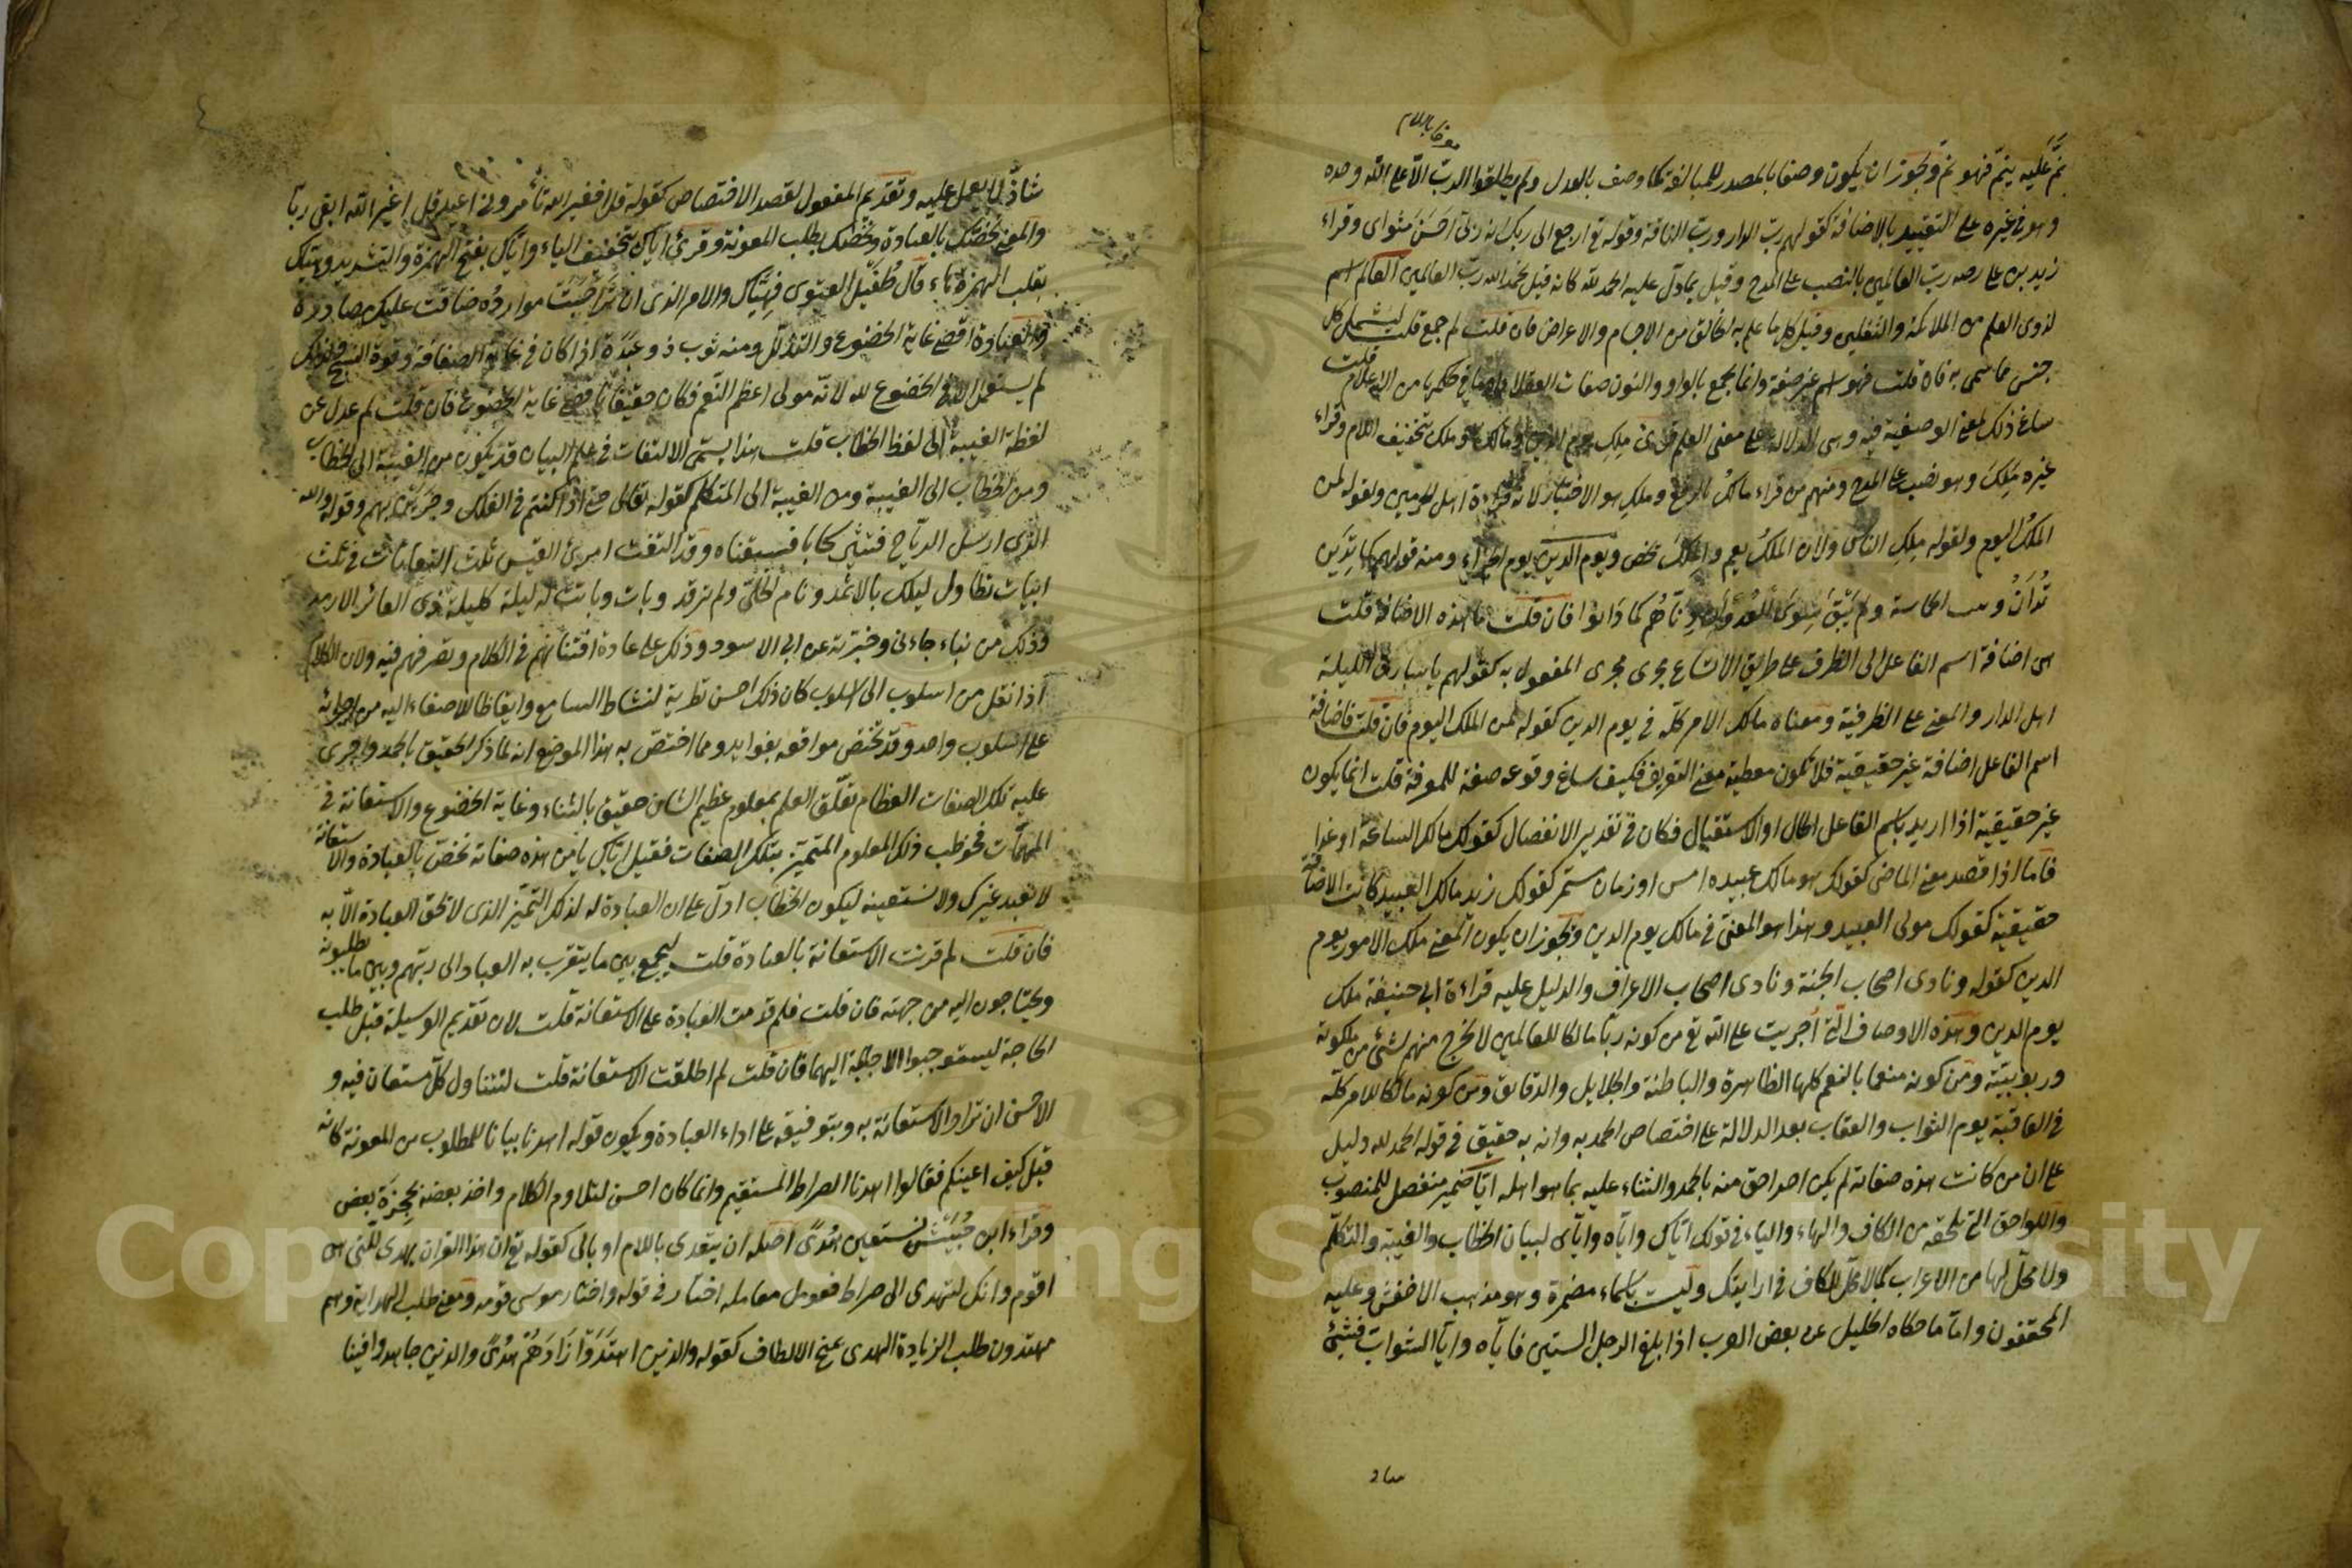 معرفا باللام
نمّ عليه ينمّ فهو نمّ ويجوز ان يكون وصفا بالمصدر للمبالغة كما وصف بالعدل ولم يطلقوا الربّ الّا على الله وحده
وهو في غيره على التقييد بالاضافة كقولهم ربّ الدار وربّ الناقة وقوله تع ارجع الى ربك انه ربّى احسن مثواى وقراء
زيد بن على رضه ربّ العالمين بالنصب على المدح وقيل بما دلّ عليه الحمد لله كانه قيل نحمد الله ربّ العالمين العالم اسم
لذوى العلم من الملائكة والثقلين وقيل كل ما علم به الخالق من الاجسام والاعراض فان قلت لم جمع قلت ليشمل كل
جنس مما سمى به فان قلت فهو اسم غير صفة وانما يجمع بالواو والنون صفات العقلاء او ما فى حكمها من الاعلام قلت
ساغ ذلك لمعنى الوصفية فيه وهى الدلالة على معنى العلم قرئ ملك يوم الدين ومالك وملك بتخفيف اللام وقراء
غيره ملك وهو نصب على المدح ومنهم من قراء مالك بالرفع وملك هو الاختيار لانه قراءة اهل الحرمين ولقوله لمن
الملك اليوم ولقوله ملك الناس ولان الملك يعم والملك يخص ويوم الدين يوم الجزاء ومنه قولهم كما تدين
تدان وبيت الحماسة ولم يبق سوى العدوان دناهم كما دانوا فان قلت ما هذه الاضافة قلت
هى اضافة اسم الفاعل الى الظرف على طريق الاتساع مجرى مجرى المفعول به كقولهم يا سارق الليلة
اهل الدار والمعنى على الظرفية ومعناه مالك الامر كلّه فى يوم الدين كقوله لمن الملك اليوم فان قلت فاضافة
اسم الفاعل اضافة غير حقيقية فلا تكون معطية معنى التعريف فكيف ساغ وقوعه صفة للمعرفة قلت انما يكون
غير حقيقية اذا اريد باسم الفاعل الحال او الاستقبال فكان فى تقدير الانفصال كقولك مالك الساعة او غدا
فاما اذا قصد معنى الماضى كقولك هو مالك عبيده امس او زمان مستمر كقولك زيد مالك العبيد كانت الاضافة
حقيقية كقولك مولى العبيد وهذا هو المعنى فى مالك يوم الدين ويجوز ان يكون المعنى ملك الامور يوم
الدين كقوله ونادى اصحاب الجنة ونادى اصحاب الاعراف والدليل عليه قراءة ابى حنيفة ملك
يوم الدين وهذه الاوصاف الّتى اجريت على الله تع من كونه ربّا مالكا للعالمين لا يخرج منهم شئ من ملكوته
وربوبيّته ومن كونه منعما بالنعم كلها الظاهرة والباطنة والجلايل والدقايق ومن كونه مالكا للامر كلّه
فى العاقبة يوم الثواب والعقاب بعد الدلالة على اختصاص الحمد به وانه به حقيق فى قوله الحمد لله دليل
على ان من كانت هذه صفاته لم يكن احد احق منه بالحمد والثناء عليه بما هو اهله ايّا ضمير منفصل للمنصوب
واللواحق التى تلحقه من الكاف والهاء والياء فى قولك ايّاك وايّاه وايّاى لبيان الخطاب والغيبة والتكلّم
ولا محلّ لها من الاعراب كما لا محلّ للكاف فى ارايتك وليست باسماء مضمرة وهو مذهب الاخفش وعليه
المحققون وامّا ما حكاه الخليل عن بعض العرب اذا بلغ الرجل الستين فاياه وايّا الشواب فشئ
شاذّ
شاذّ لا يعمل عليه وتقديم المفعول لقصد الاختصاص كقوله قل افغير الله تأمرونى اعبد قل اغير الله ابغى ربّا
والمعنى نخصّك بالعبادة ونخصّك بطلب المعونة وقرئ اياك بتخفيف الياء وايّاك بفتح الهمزة والتشديد وهيّاك
بقلب الهمزة هاء قال طفيل الغنوى فهيّاك والامر الذى ان تراحبت موارده ضاقت عليك مصادره
والعبادة اقصى غاية الخضوع والتذلّل ومنه ثوب ذو عبدة اذا كان فى غاية الصفاقة وقوة النسج ولذلك
لم يستعمل الا فى الخضوع لله لانّه مولى اعظم النّعم فكان حقيقا باقصى غاية الخضوع فان قلت لم عدل عن
لفظة الغيبة الى لفظ الخطاب قلت هذا يسمّى الالتفات فى علم البيان قد يكون من الغيبة الى الخطاب
ومن الخطاب الى الغيبة ومن الغيبة الى المتكلم كقوله تعالى حتى اذا كنتم فى الفلك وجرين بهم وقوله والله
الذى ارسل الرياح فتثير سحابا فسقناه وقد التفت امرئ القيس ثلث التفاتات فى ثلث
ابيات تطاول ليلك بالاثمد ونام الخلىّ ولم ترقد وبات وباتت له ليلة كليلة ذى العائر الارمد
وذلك من نباء جاءنى وخبرته عن ابى الاسود وذلك على عادة افتنانهم فى الكلام وتصرفهم فيه ولان الكلام
اذا نقل من اسلوب الى اسلوب كان ذلك احسن تطرية لنشاط السامع وايقاظا للاصغاء اليه من اجرائه
على اسلوب واحد وقد تختص مواقعه بفوايد ومما اختصّ به هذا الموضع انه لما ذكر الحقيق بالحمد واجرى
عليه تلك الصفات العظام تعلّق العلم بمعلوم عظيم الشان حقيق بالثناء وغاية الخضوع والاستعانة فى
المهمّات فخوطب ذلك المعلوم المتميّز بتلك الصفات فقيل ايّاك يا من هذه صفاته نخصّ بالعبادة والاستعانة
لا نعبد غيرك ولا نستعينه ليكون الخطاب ادلّ على ان العبادة له لذلك التميّز الذى لا تحق العبادة الّا به
فان قلت لم قرنت الاستعانة بالعبادة قلت ليجمع بين ما يتقرب به العباد الى ربّهم وبين ما يطلبونه
ويحتاجون اليه من جهته فان قلت فلم قدمت العبادة على الاستعانة قلت لان تقديم الوسيلة قبل طلب
الحاجة ليستوجبوا الاجابة اليها فان قلت لم اطلقت الاستعانة قلت لتتناول كلّ مستعان فيه و
الاحسن ان تراد الاستعانة به وبتوفيقه على اداء العبادة ويكون قوله اهدنا بيانا للمطلوب من المعونة كانه
قيل كيف اعينكم فقالوا اهدنا الصراط المستقيم وانما كان احسن لتلاوم الكلام واخذ بعضه بحجزة بعض
وقراء ابن حبيش نستعين هدى اصله ان يتعدى باللام او بالى كقوله تع ان هذا القران يهدى للّتى هى
اقوم وانك لتهدى الى صراط فعومل معاملة اختار فى قوله واختار موسى قومه ومعنى طلب الهداية وهم
مهتدون طلب الزيادة الهدى بمنح الالطاف كقوله والذين اهتدوا زادهم هدى والذين جاهدوا فينا
Copyright © King Saud University
1957